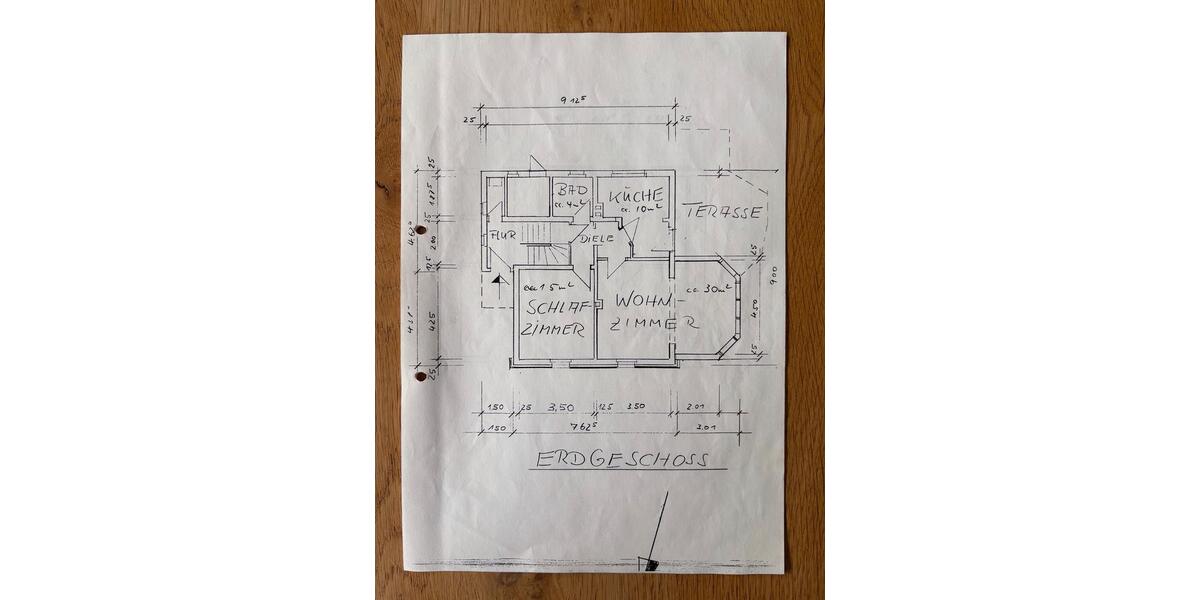 9 12⁵
25
25
25
1875
25
200
12⁵
4.62⁵
425
25
BAD
ca. 4m²
KÜCHE
ca. 10m²
TERASSE
FLUR
DIELE
ca 15m²
SCHLAF-
ZIMMER
WOHN-
ZIMMER
ca. 30m²
25
450
25
900
1.50
25
3,50
12⁵
3.50
2.01
1.50
7.62⁵
3.01
ERDGESCHOSS